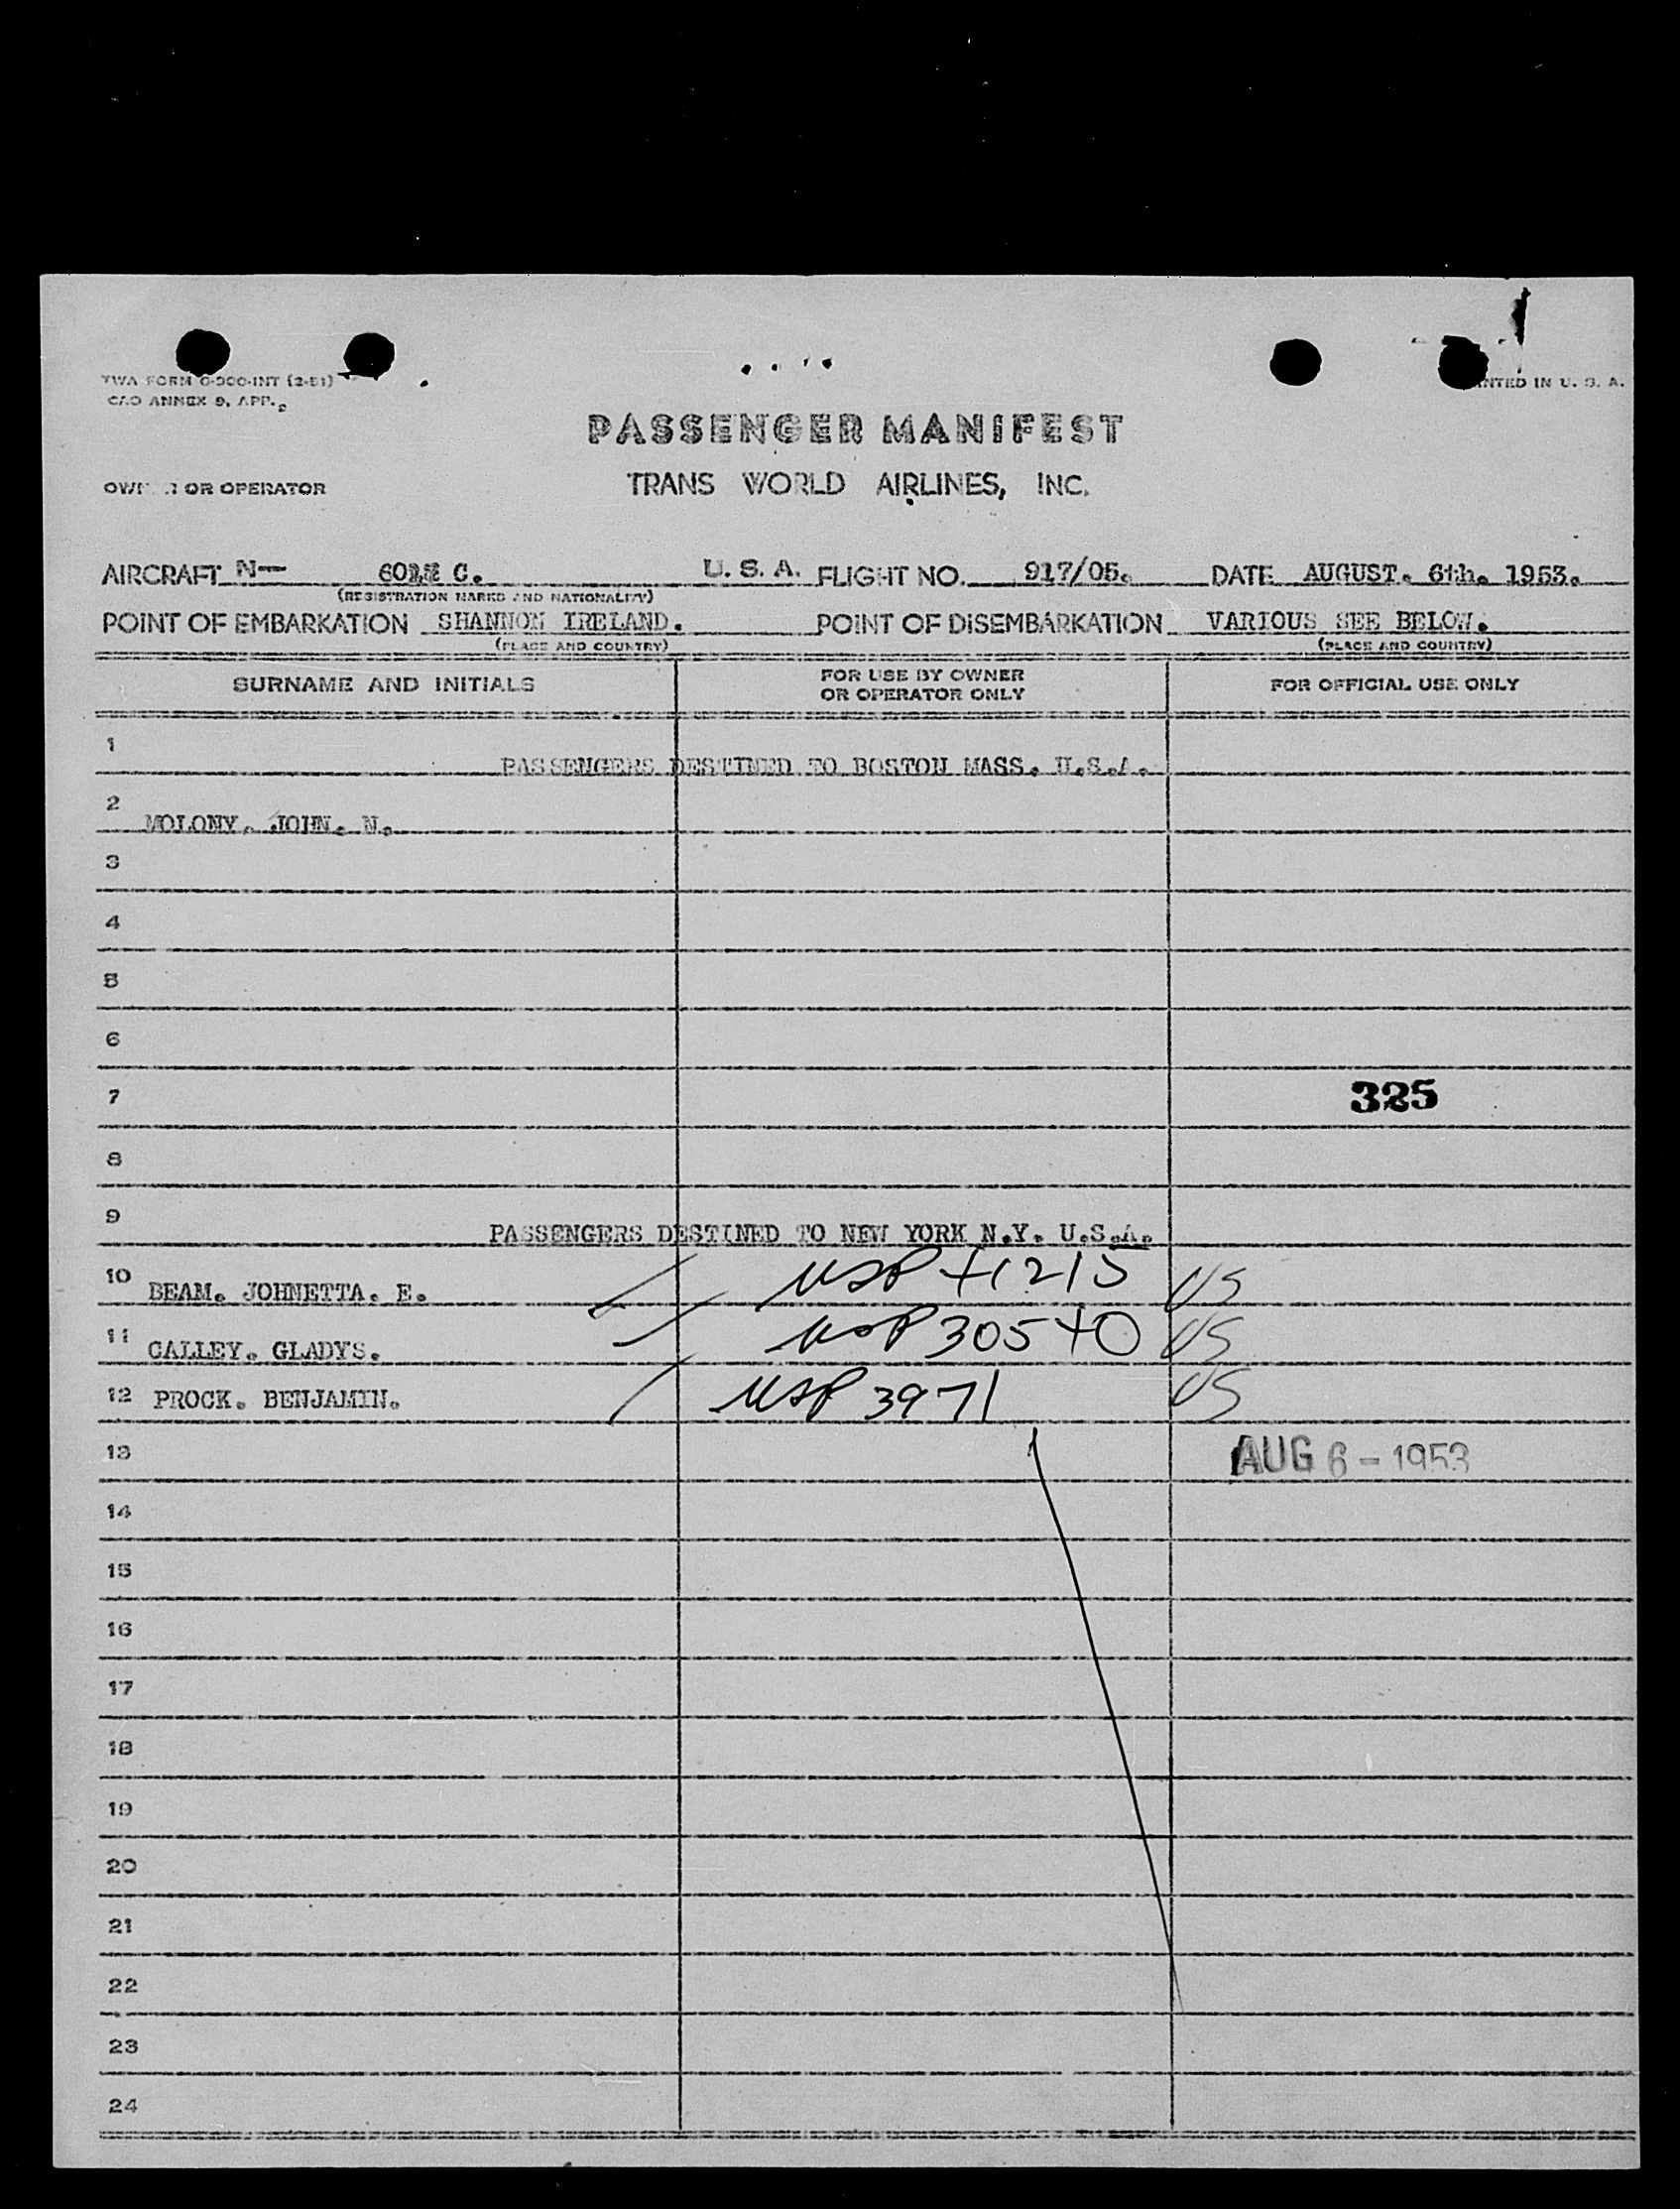 TWA FORM
CAO ANNEX 9, APP.
U. S. A.
PASSENGER MANIFEST
OR OPERATOR
TRANS WORLD AIRLINES, INC.
AIRCRAFT N— C. U. S. A. FLIGHT NO. 917/05. DATE AUGUST. 6th. 1953.
(REGISTRATION MARKS AND NATIONALITY)
POINT OF EMBARKATION SHANNON IRELAND. POINT OF DISEMBARKATION VARIOUS SEE BELOW.
(PLACE AND COUNTRY) (PLACE AND COUNTRY)
SURNAME AND INITIALS FOR USE BY OWNER OR OPERATOR ONLY FOR OFFICIAL USE ONLY
1 PASSENGERS DESTINED TO BOSTON MASS. U.S.A.
2 MOLONY. JOHN. N.
3
4
5
6
7 325
8
9 PASSENGERS DESTINED TO NEW YORK N.Y. U.S.A.
10 BEAM. JOHNETTA. E. USP US
11 CALLEY. GLADYS. USP US
12 PROCK. BENJAMIN. USP 3971 US
13 AUG 6 - 1953
14
15
16
17
18
19
20
21
22
23
24